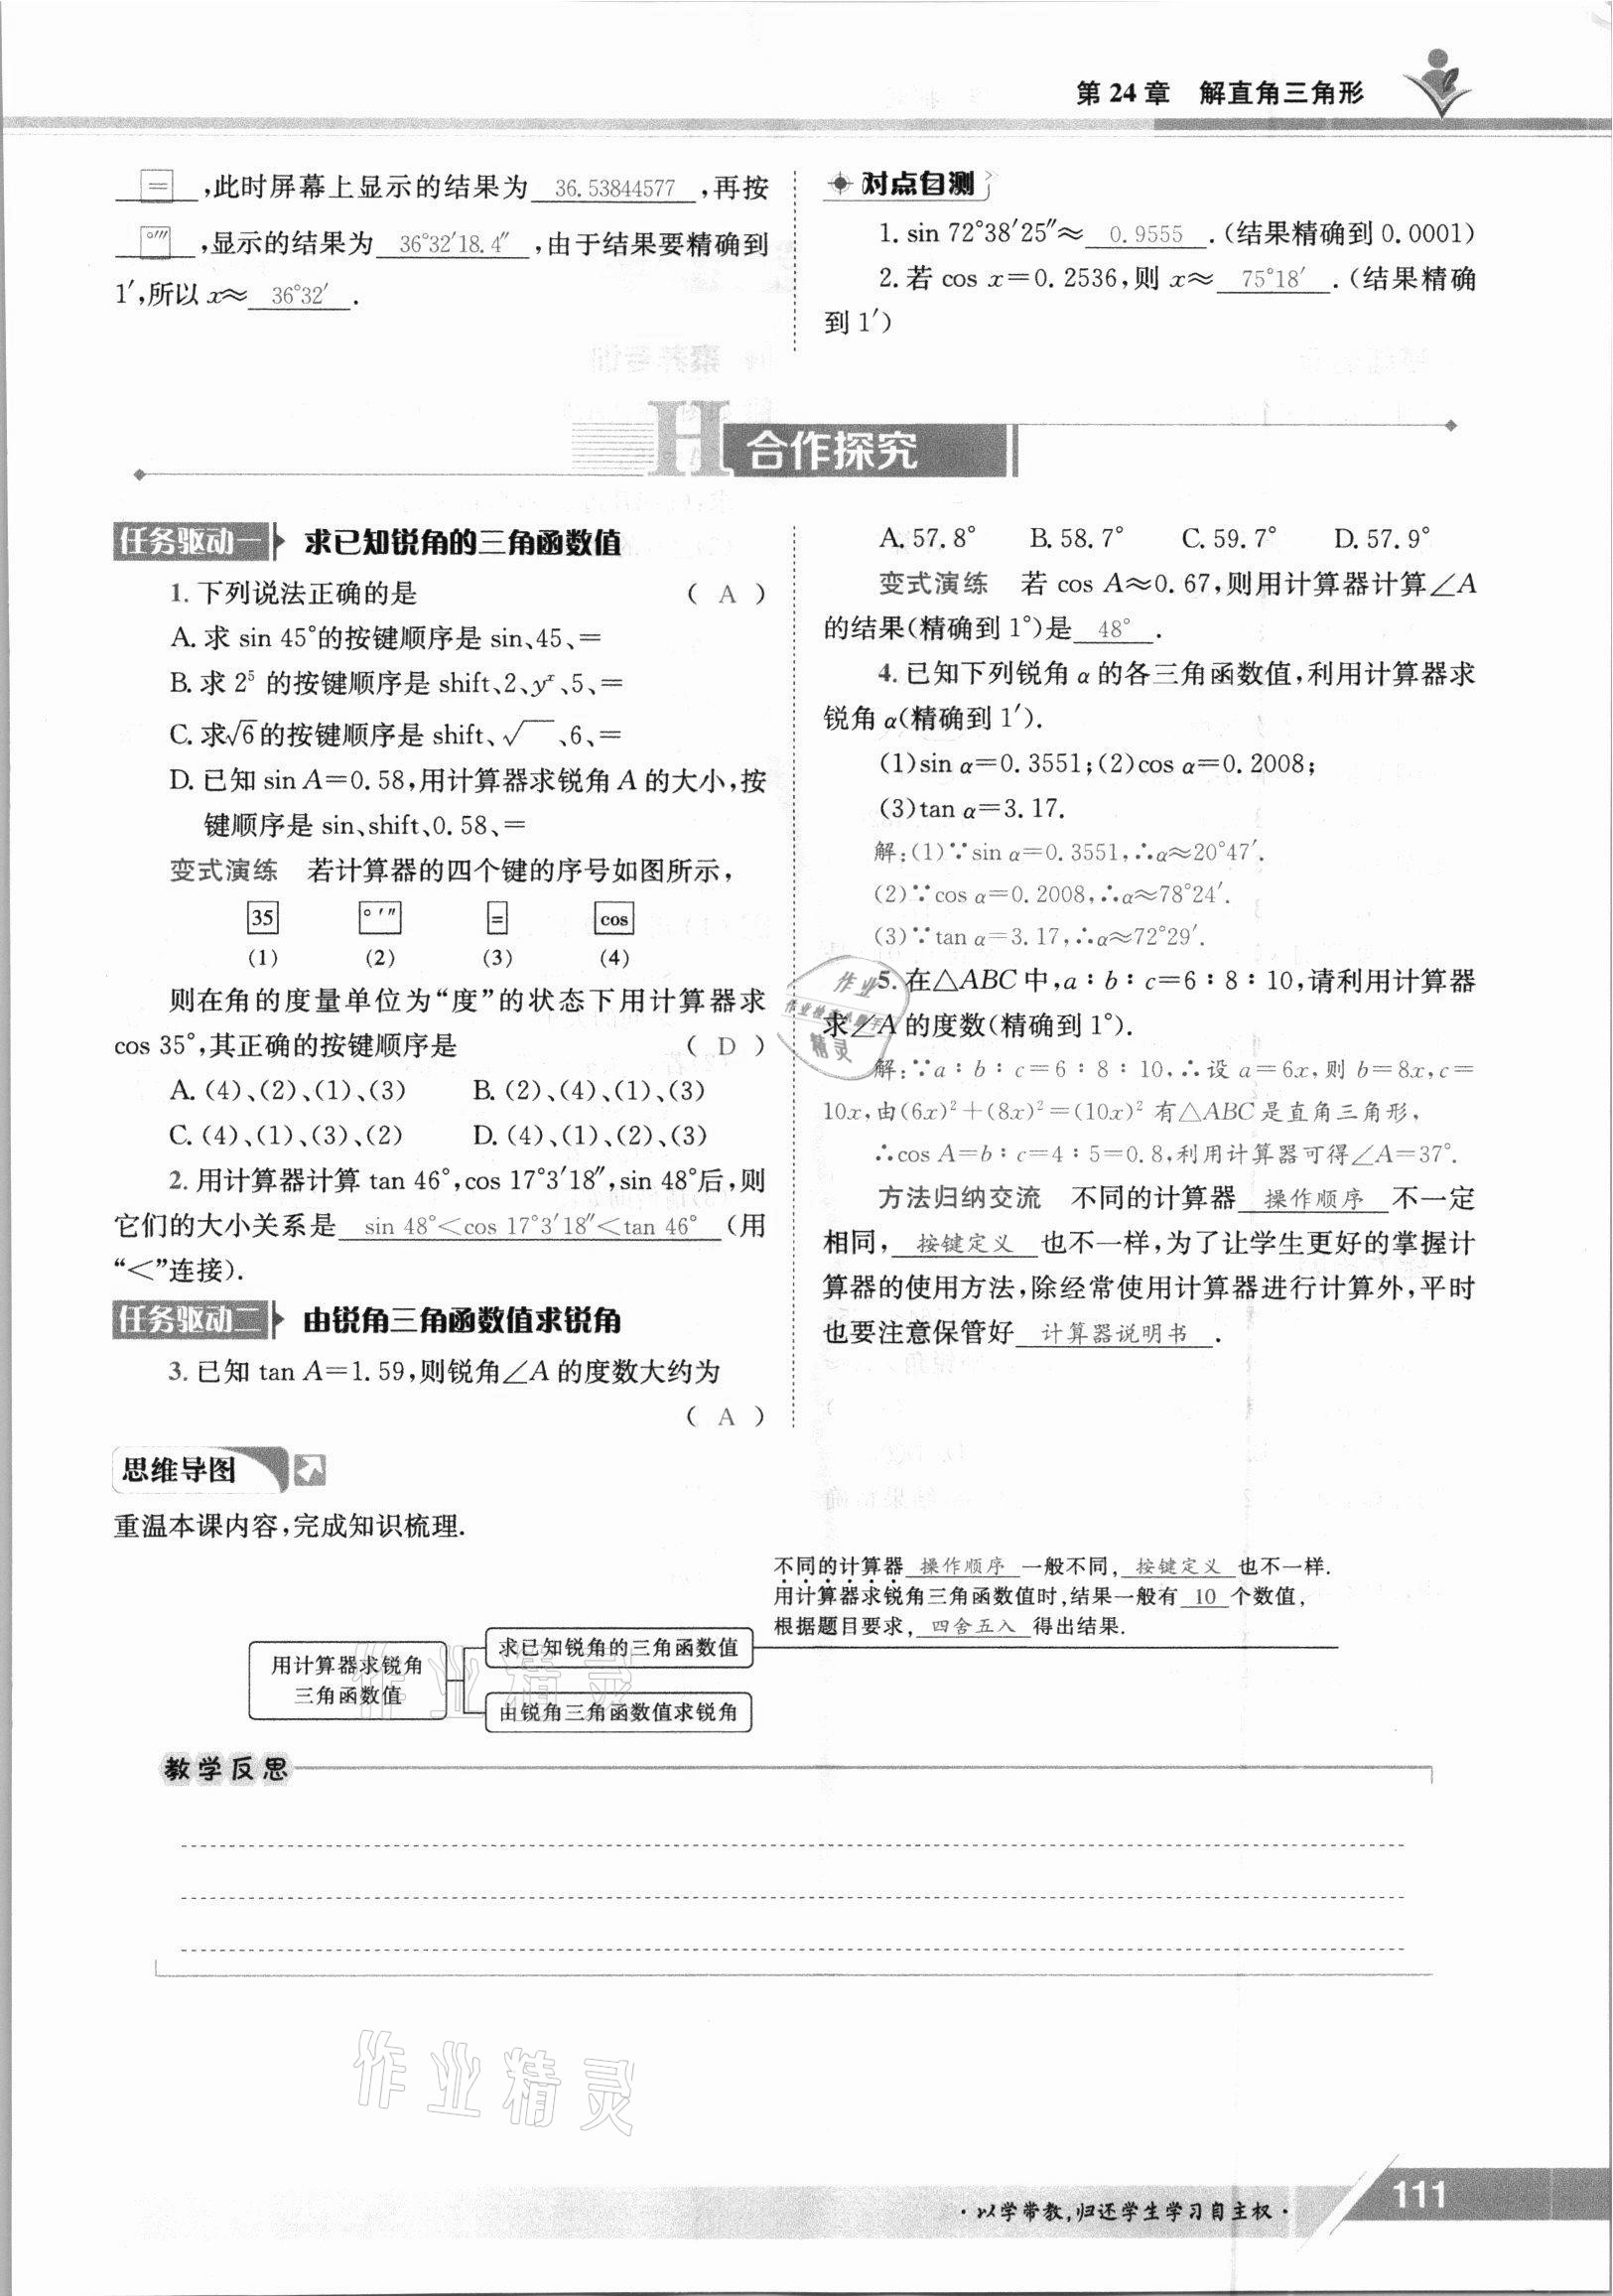 第24章 解直角三角形
= ,此时屏幕上显示的结果为 36.53844577 ,再按
°′″ ,显示的结果为 36°32′18.4″ ,由于结果要精确到
1′,所以 x≈ 36°32′ .
对点自测
1. sin 72°38′25″≈ 0.9555 .(结果精确到0.0001)
2. 若 cos x=0.2536,则 x≈ 75°18′ .(结果精确
到1′)
H 合作探究
任务驱动一 求已知锐角的三角函数值
1. 下列说法正确的是 ( A )
A. 求 sin 45°的按键顺序是 sin、45、=
B. 求 2⁵ 的按键顺序是 shift、2、yˣ、5、=
C. 求√6的按键顺序是 shift、√ ̄、6、=
D. 已知 sin A=0.58,用计算器求锐角 A 的大小,按
键顺序是 sin、shift、0.58、=
变式演练 若计算器的四个键的序号如图所示,
35 °′″ = cos
(1) (2) (3) (4)
则在角的度量单位为“度”的状态下用计算器求
cos 35°,其正确的按键顺序是 ( D )
A. (4)、(2)、(1)、(3) B. (2)、(4)、(1)、(3)
C. (4)、(1)、(3)、(2) D. (4)、(1)、(2)、(3)
2. 用计算器计算 tan 46°,cos 17°3′18″,sin 48°后,则
它们的大小关系是 sin 48°<cos 17°3′18″<tan 46° (用
“<”连接).
任务驱动二 由锐角三角函数值求锐角
3. 已知 tan A=1.59,则锐角∠A 的度数大约为
( A )
A. 57.8° B. 58.7° C. 59.7° D. 57.9°
变式演练 若 cos A≈0.67,则用计算器计算∠A
的结果(精确到1°)是 48° .
4. 已知下列锐角 α 的各三角函数值,利用计算器求
锐角 α(精确到1′).
(1)sin α=0.3551;(2)cos α=0.2008;
(3)tan α=3.17.
解:(1)∵sin α=0.3551,∴α≈20°47′.
(2)∵cos α=0.2008,∴α≈78°24′.
(3)∵tan α=3.17,∴α≈72°29′.
5. 在△ABC 中,a∶b∶c=6∶8∶10,请利用计算器
求∠A 的度数(精确到1°).
解:∵a∶b∶c=6∶8∶10,∴设 a=6x,则 b=8x,c=
10x,由(6x)²+(8x)²=(10x)² 有△ABC 是直角三角形,
∴cos A=b∶c=4∶5=0.8,利用计算器可得∠A=37°.
方法归纳交流 不同的计算器 操作顺序 不一定
相同, 按键定义 也不一样,为了让学生更好的掌握计
算器的使用方法,除经常使用计算器进行计算外,平时
也要注意保管好 计算器说明书 .
作业
精灵
思维导图
重温本课内容,完成知识梳理.
不同的计算器 操作顺序 一般不同, 按键定义 也不一样.
用计算器求锐角三角函数值时,结果一般有 10 个数值,
根据题目要求, 四舍五入 得出结果.
求已知锐角的三角函数值
用计算器求锐角
三角函数值
由锐角三角函数值求锐角
作业精灵
教学反思
作业精灵
·以学带教,归还学生学习自主权·
111